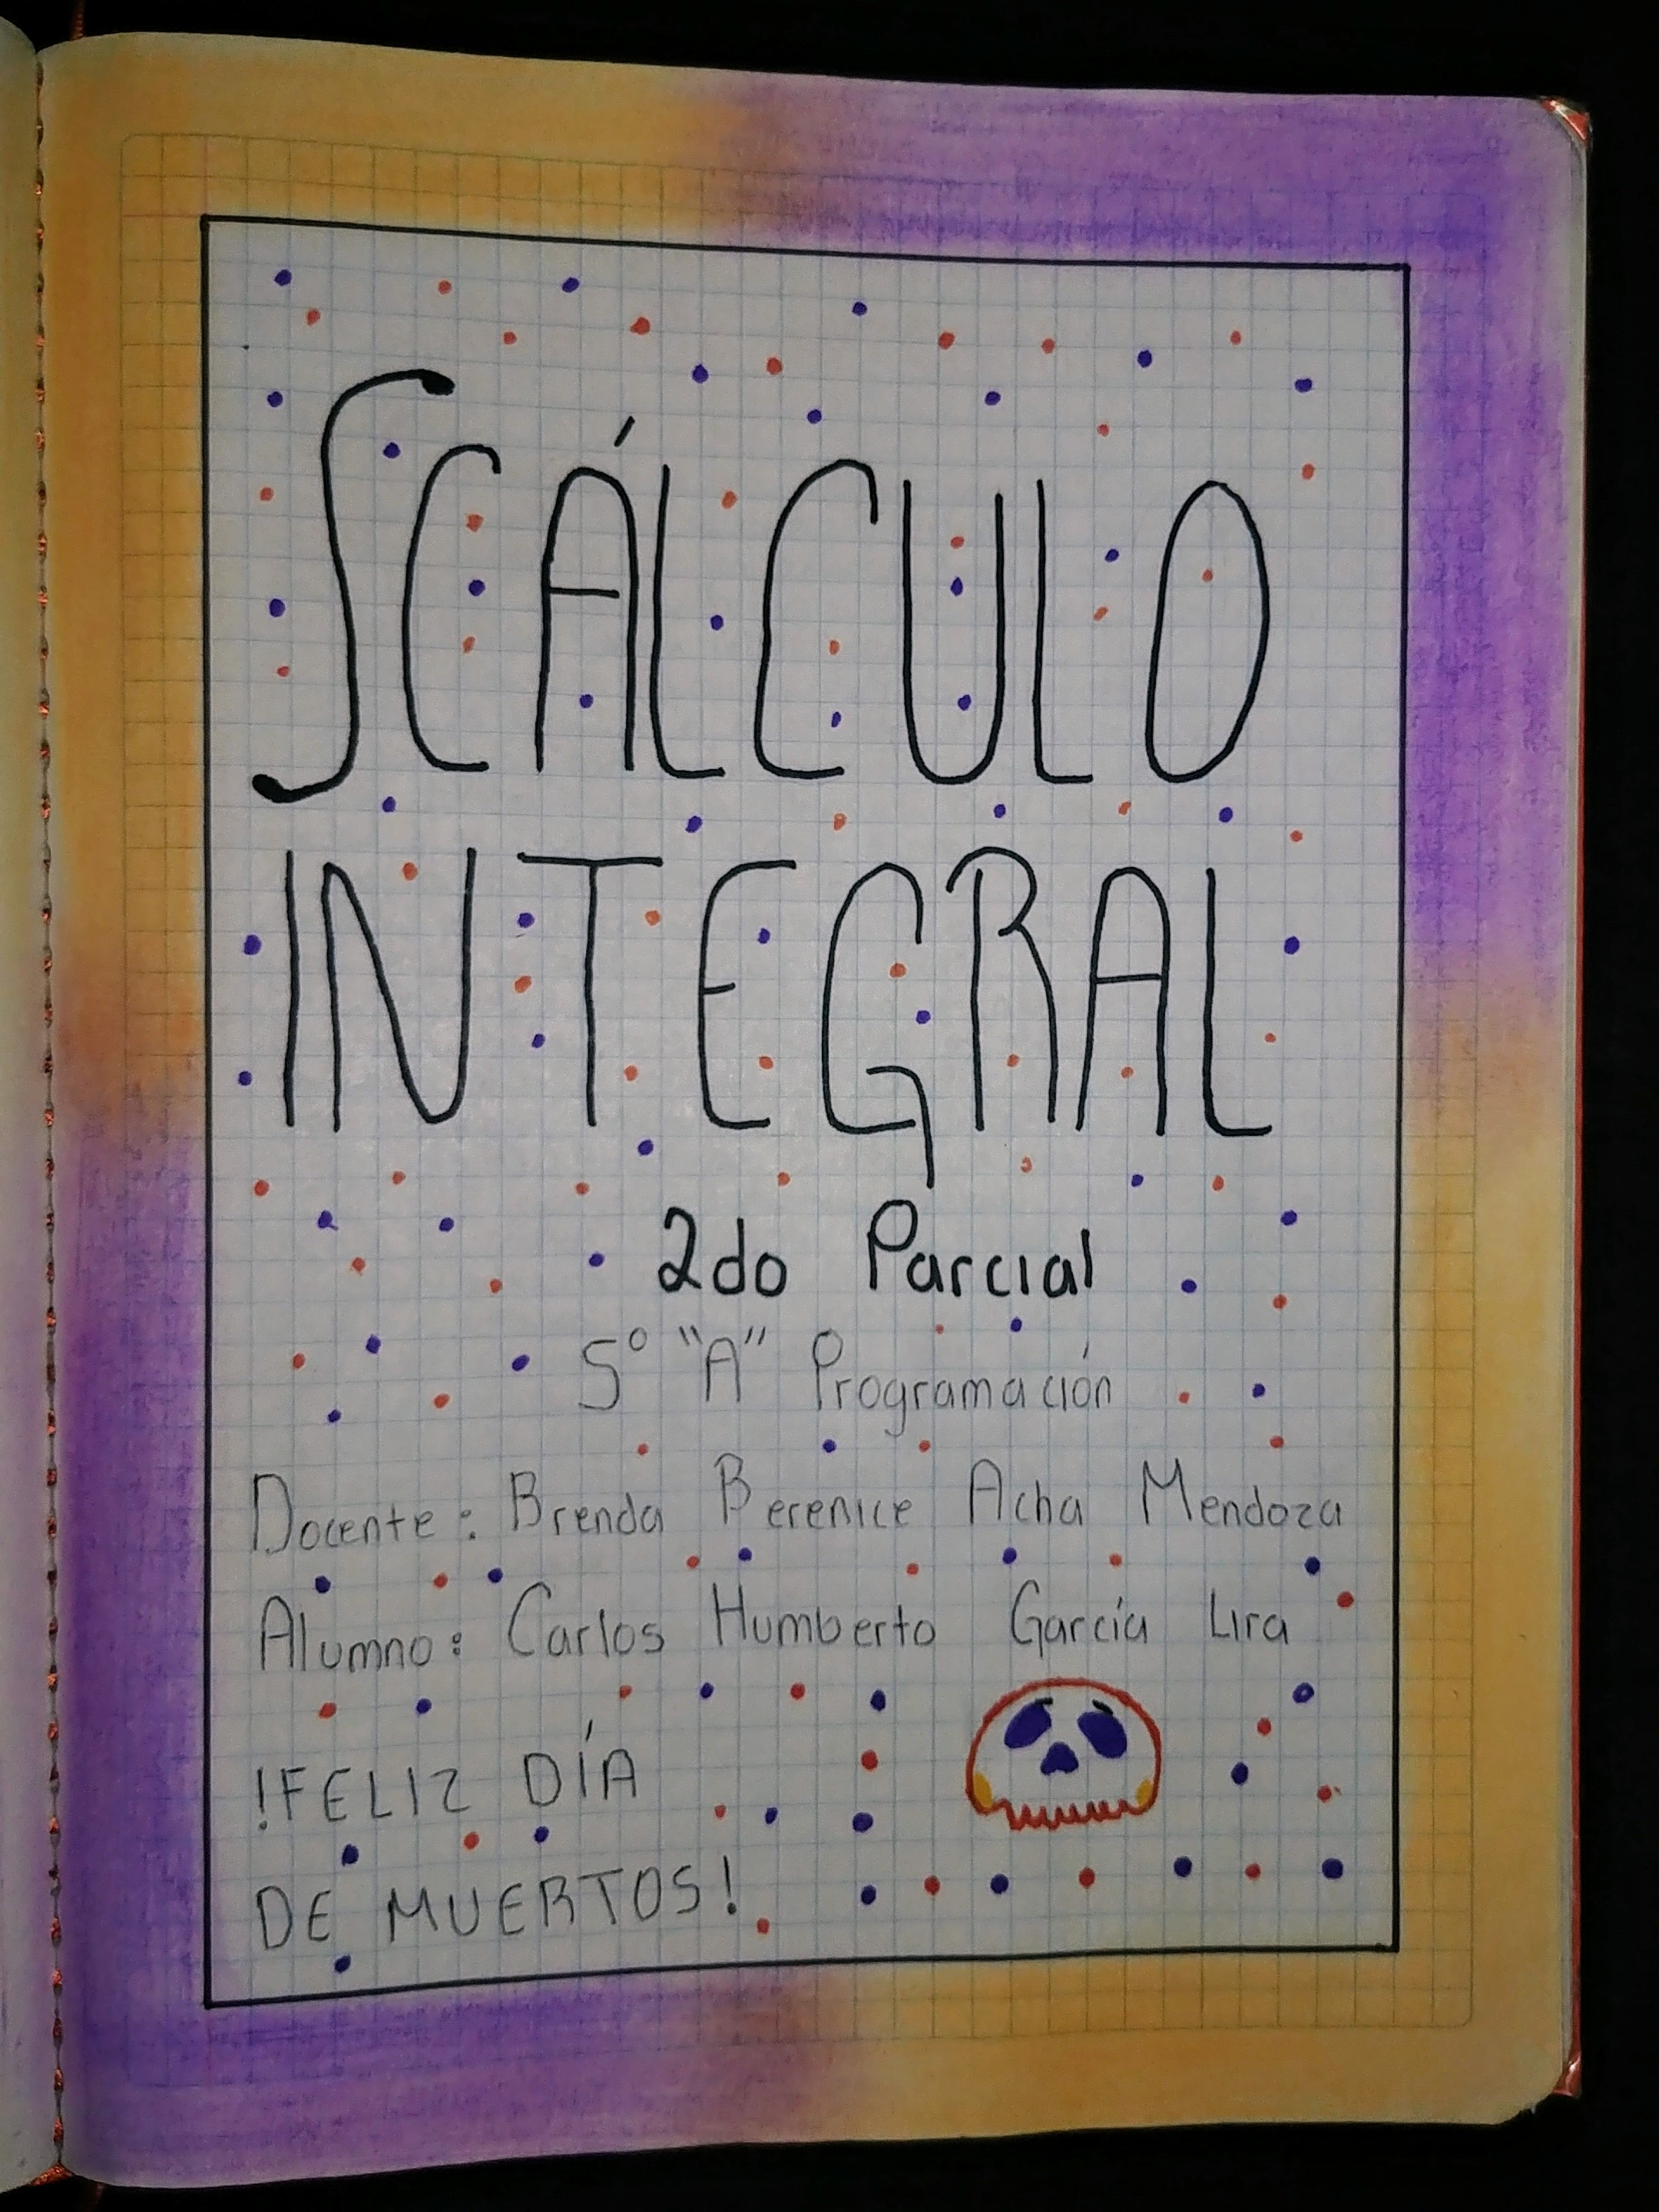 ∫CÁLCULO
INTEGRAL
2do Parcial
5° "A" Programación
Docente: Brenda Berenice Acha Mendoza
Alumno: Carlos Humberto García Lira
!FELIZ DÍA
DE MUERTOS!